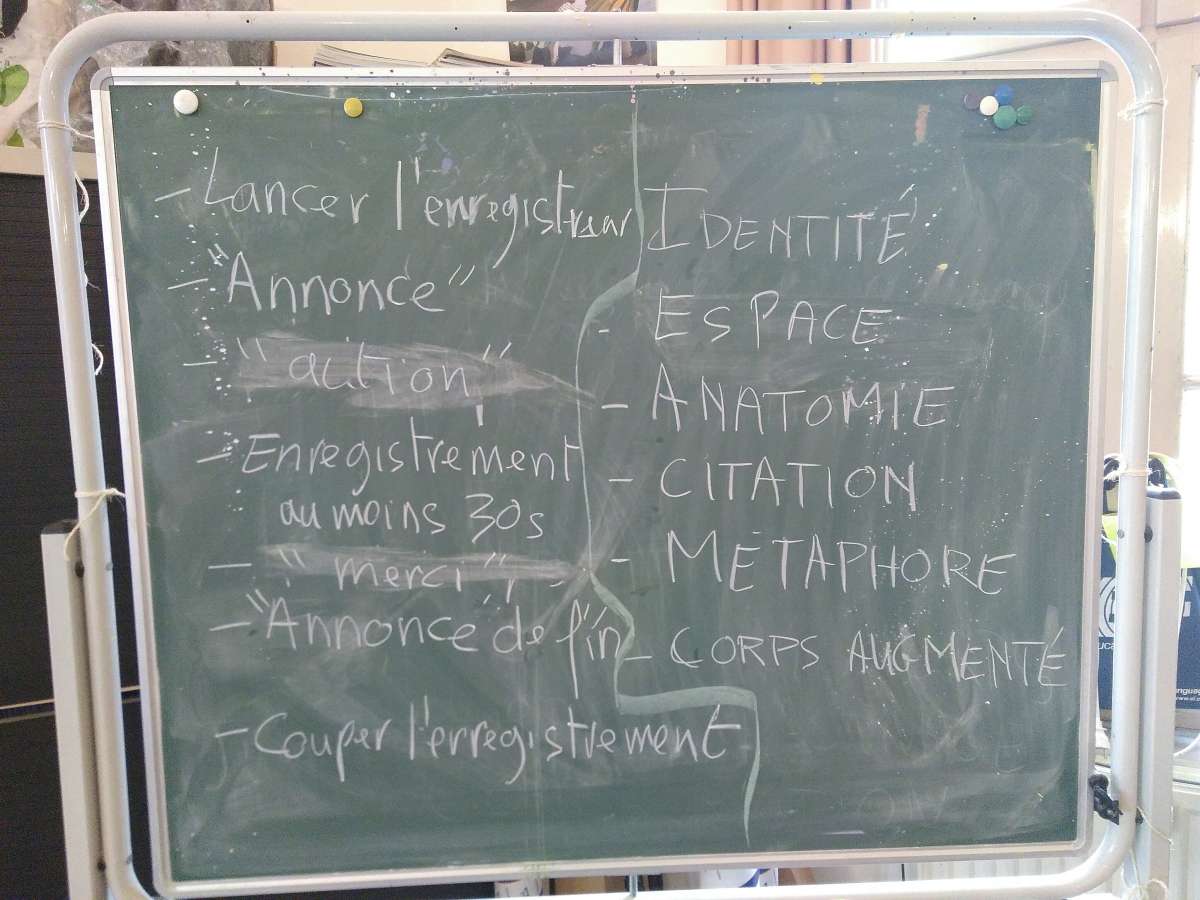 - Lancer l'enregistreur
- "Annonce"
- "action"
- Enregistrement
au moins 30s
- "merci"
- "Annonce de fin"
- Couper l'erregistrement
IDENTITÉ
- ESPACE
- ANATOMIE
- CITATION
- MÉTAPHORE
- CORPS AUGMENTÉ